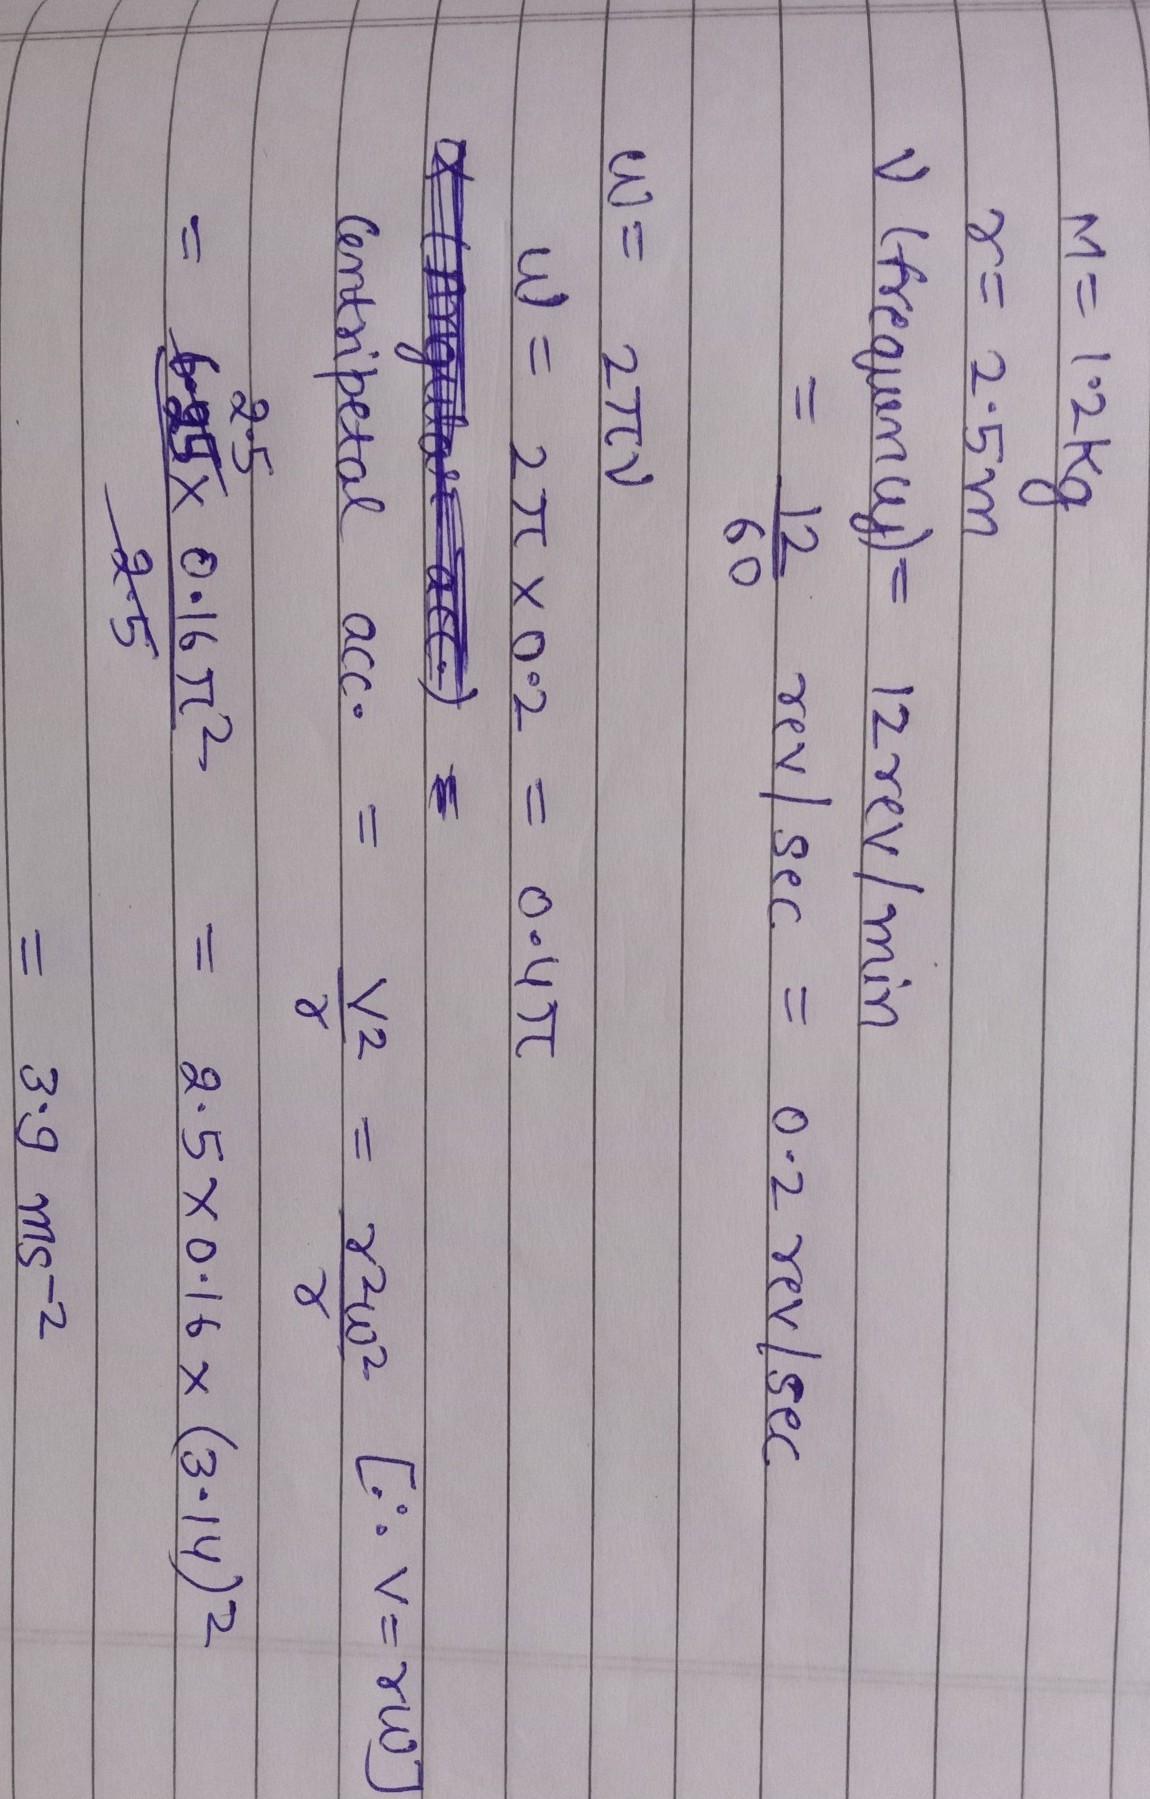 M = 1.2 kg
r = 2.5 m
ν (frequency) = 12 rev/min
= 12/60 rev/sec = 0.2 rev/sec
ω = 2πν
ω = 2π × 0.2 = 0.4π
Centripetal acc. = v2/r = r²ω²/r [∵ v = rω]
= 2.5 × 0.16π² = 2.5 × 0.16 × (3.14)²
2.5
= 3.9 ms⁻²